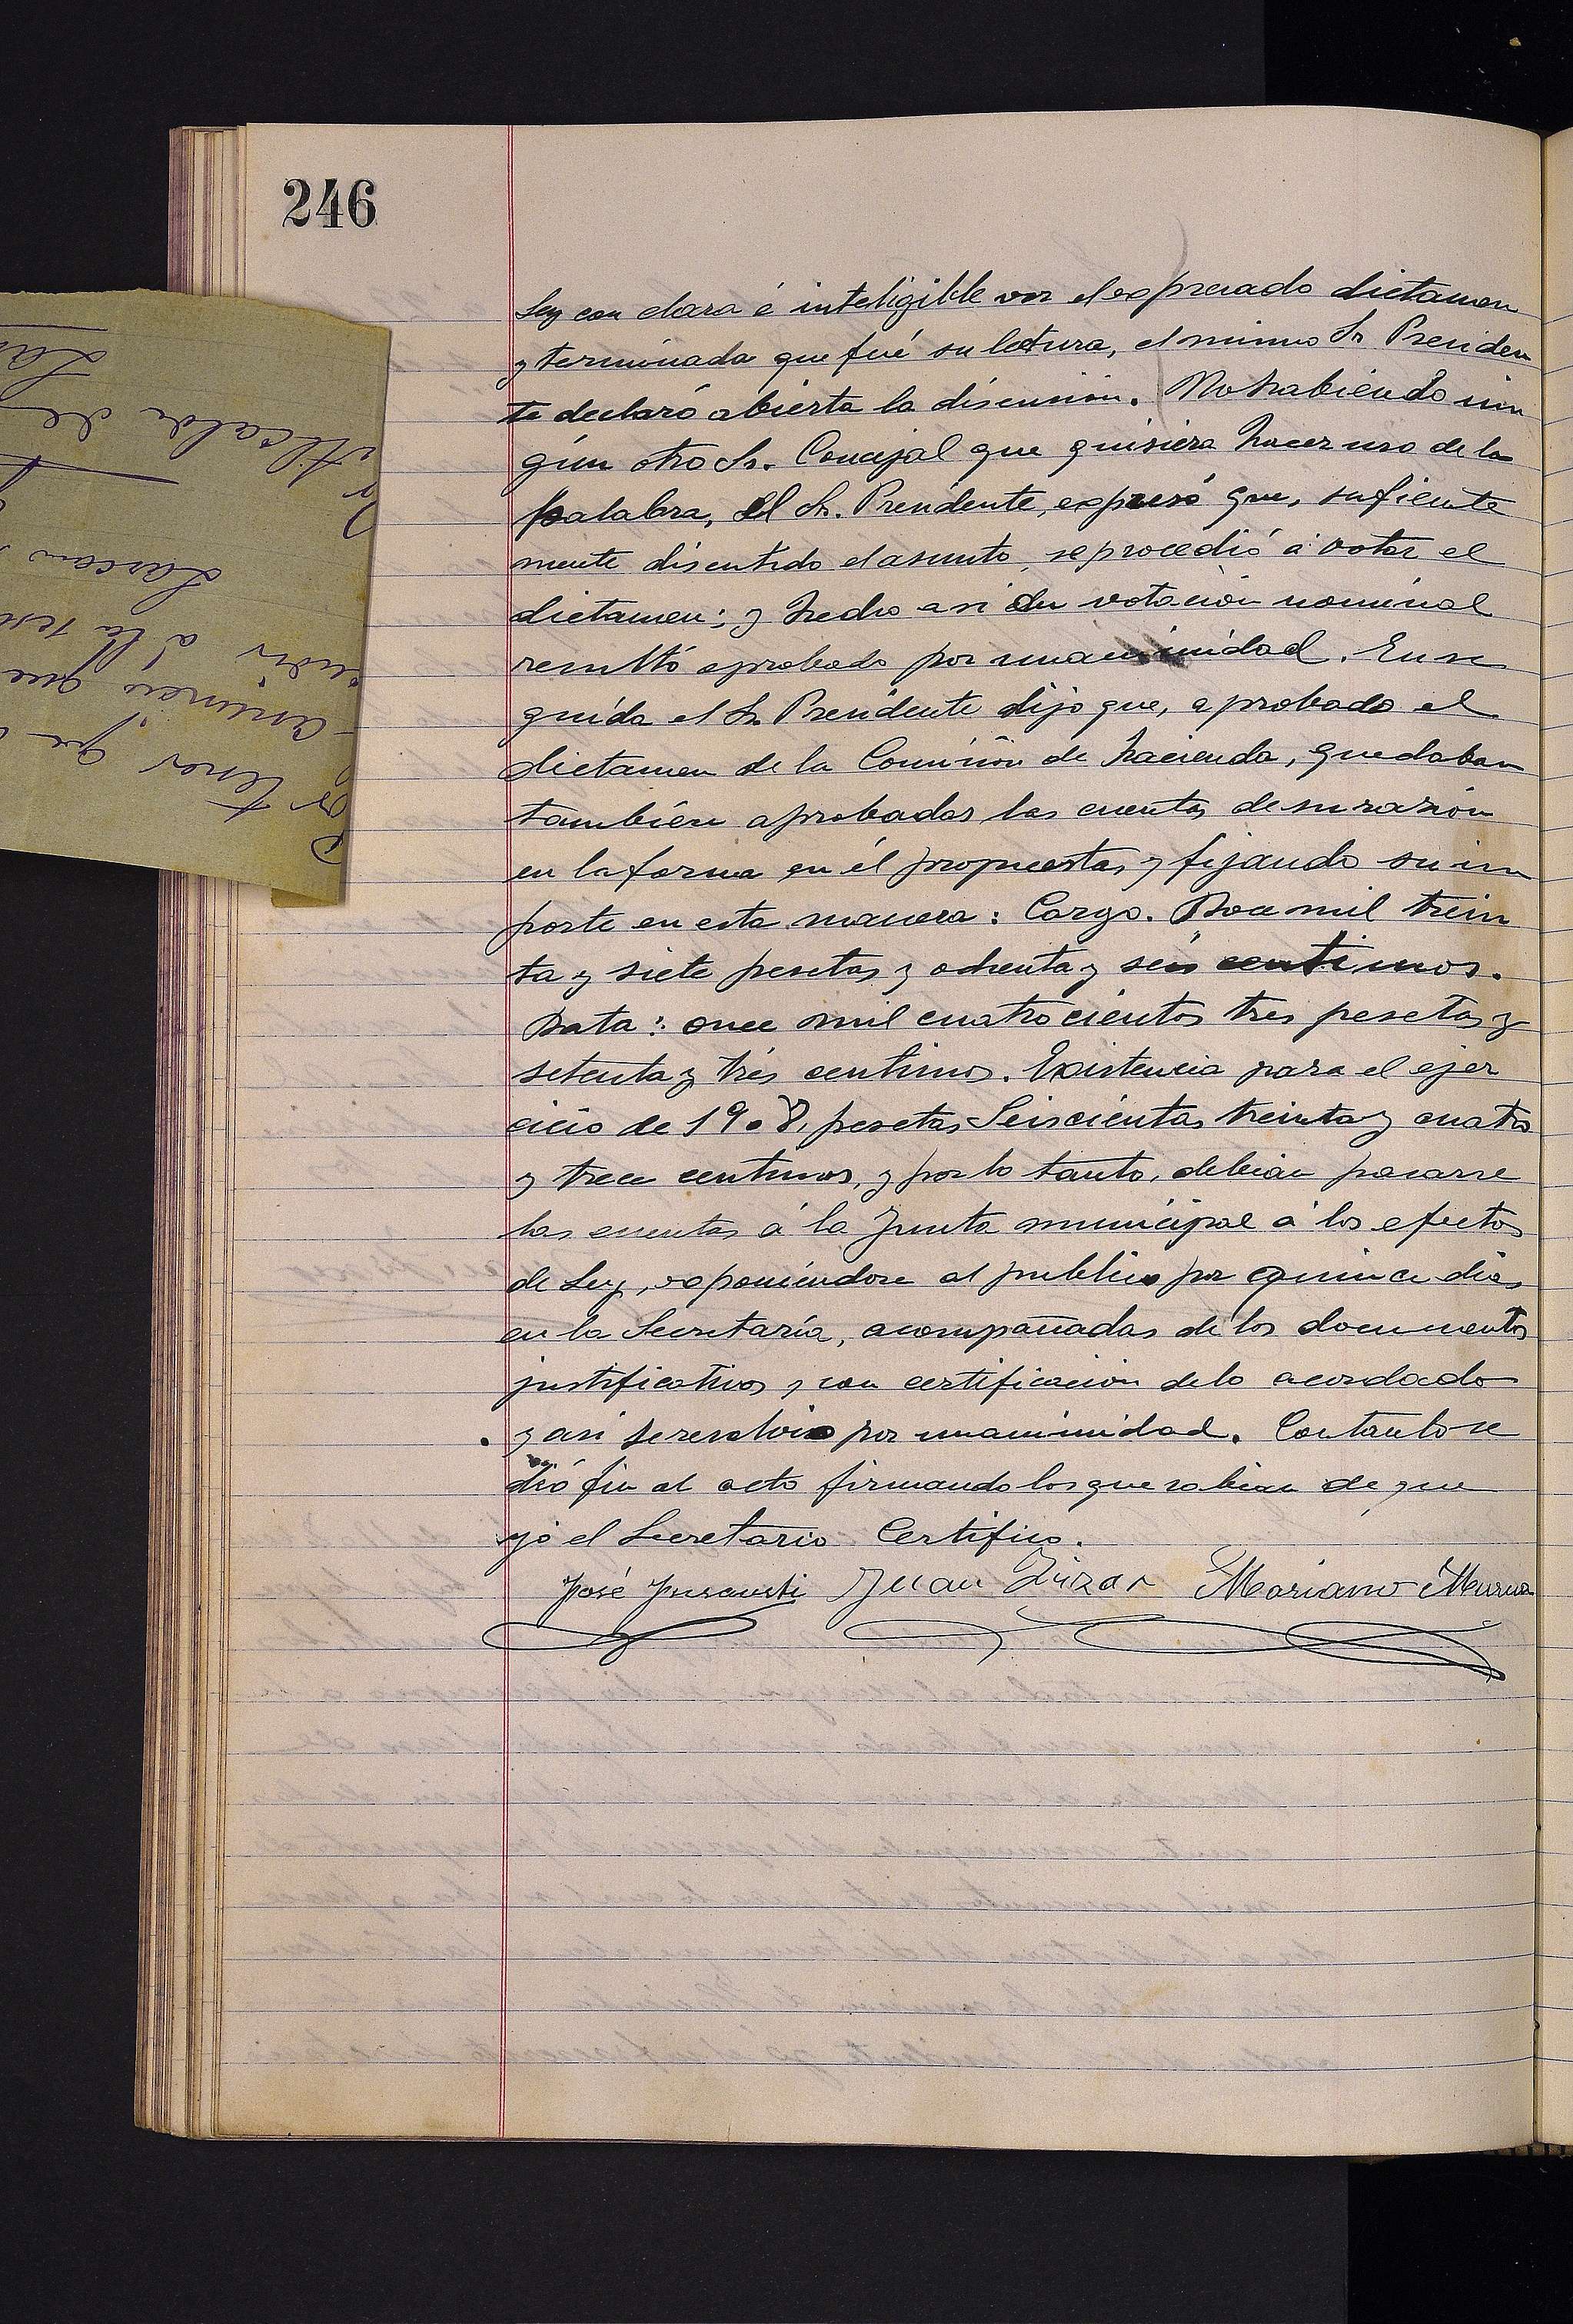 246
Ley con clara é inteligible voz el expresado dictamen
y terminada que fué su lectura, el mismo Sr Presiden
te declaró abierta la discusión. No habiendo nin
gún otro Sr. Concejal que quisiera hacer uso de la
palabra, el Sr. Presidente, expresó que, suficiente
mente discutido el asunto, se procedió á votar el
dictamen; y hecho asi en votación nominal
resultó aprobado por unanimidad. En se
guida el Sr Presidente dijo que, aprobado el
dictamen de la Comisión de hacienda, quedaban
también aprobadas las cuentas de su razón
en la forma en él propuesta, y fijando su im
porte en esta manera: Cargo. Doce mil trein
ta y siete pesetas y ochenta y seis centimos.
Data: once mil cuatrocientos tres pesetas y
setenta y trés centimos. Existencia para el ejer
cicio de 1908, pesetas Seiscientas treinta y cuatro
y trece centimos, y por lo tanto, debian pasarse
las cuentas á la Junta municipal á los efectos
de Ley, exponiéndose al publico por quince dias
en la Secretaría, acompañadas de los documentos
justificativos y con certificación de lo acordado
y asi se resolvio por unanimidad. Con tanto se
dió fin al acto firmando los que sabian de que
yo el Secretario Certifico.
José Juan Mariano
Por tener que
anuncio que
á la
Lascan
Sr Alcalde de